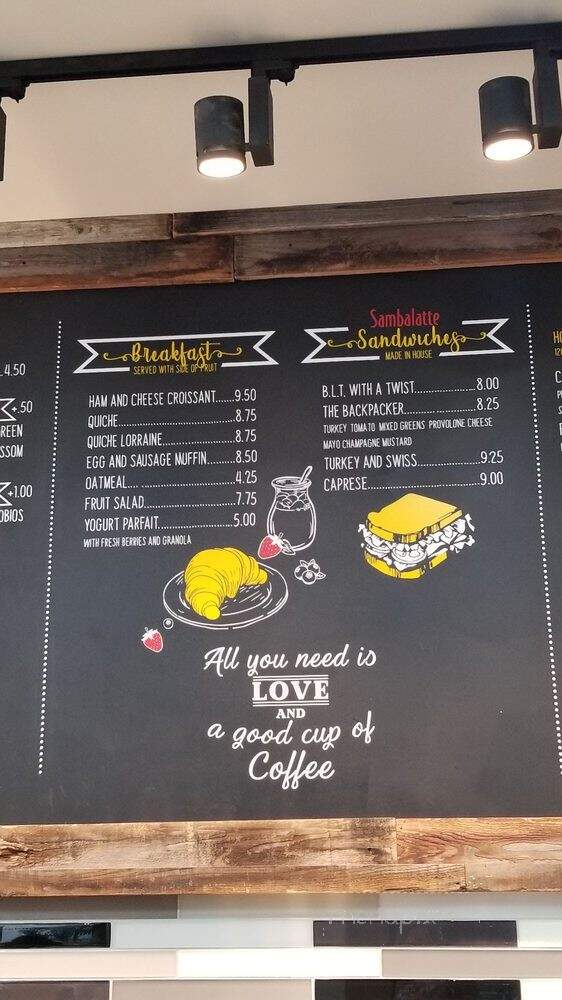 4.50
+.50
REEN
SSOM
+1.00
OBIOS
Breakfast
SERVED WITH SIDE OF FRUIT
HAM AND CHEESE CROISSANT.....9.50
QUICHE..............................8.75
QUICHE LORRAINE..................8.75
EGG AND SAUSAGE MUFFIN........8.50
OATMEAL............................4.25
FRUIT SALAD........................7.75
YOGURT PARFAIT...................5.00
WITH FRESH BERRIES AND GRANOLA
Sambalatte
Sandwiches
MADE IN HOUSE
B.L.T. WITH A TWIST..................8.00
THE BACKPACKER.....................8.25
TURKEY TOMATO MIXED GREENS PROVOLONE CHEESE
MAYO CHAMPAGNE MUSTARD
TURKEY AND SWISS..................9.25
CAPRESE..............................9.00
All you need is
LOVE
AND
a good cup of
Coffee